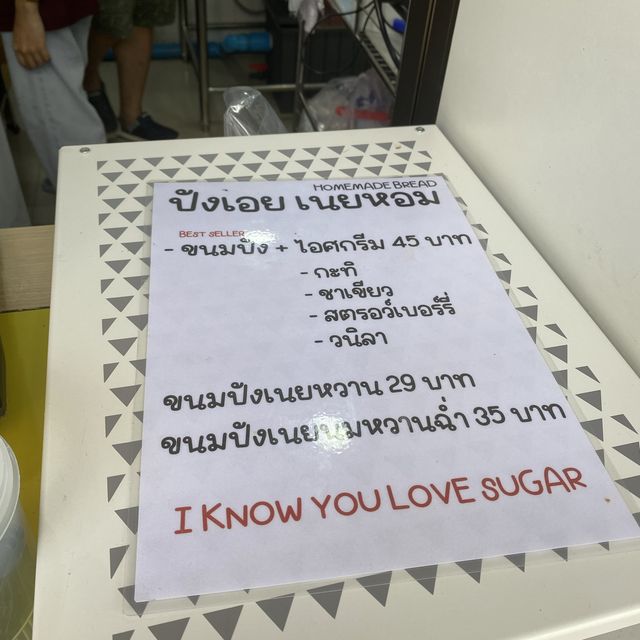 HOMEMADE BREAD
ปังเอย เนยหอม
BEST SELLER
- ขนมปัง + ไอศกรีม 45 บาท
- กะทิ
- ชาเขียว
- สตรอว์เบอร์รี่
- วนิลา
ขนมปังเนยหวาน 29 บาท
ขนมปังเนยนมหวานฉ่ำ 35 บาท
I KNOW YOU LOVE SUGAR